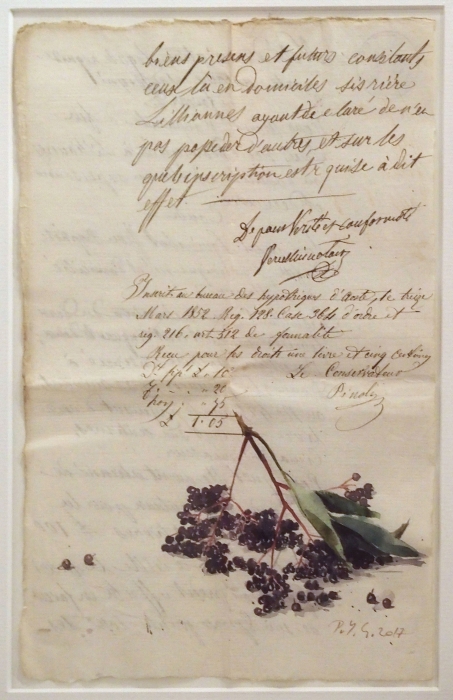 biens presens et futurs consistants
ceux la en domiciles sis rière
Lillianes ayant declaré de n'en
pas posseder d'autres, et sur les
quels inscription est requise à dit
effet
De pour Vérité et conformité
Perulliis notaire
Inscrit au bureau des hypothèques d'Aoste, le treize
Mars 1852 Reg. 128. Case 364 d'ordre et
reg 216. art 512 de formalité
Reçu pour les droits une livre et cinq centimes
L. 10 Le Conservateur
20 Pinoly
L 1.05
P. Y. G. 2017